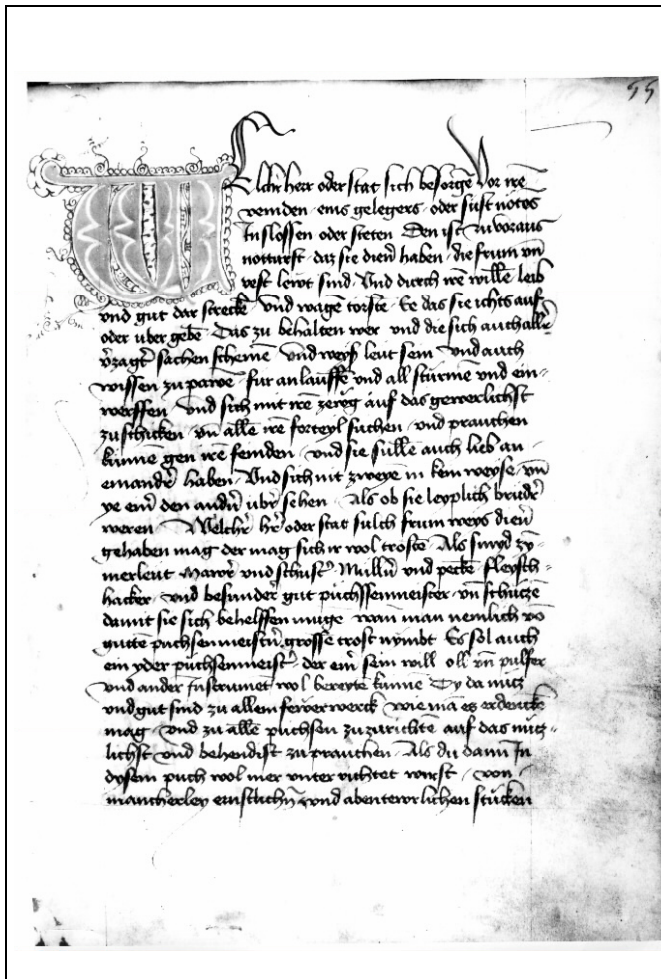 55
Welcher herr oder stat sich besorgē vor irē
veinden eins gelegers oder süst nötes
In slossen oder steten Den ist zu voraus
notturft daz sie dieñ haben die frum vñ
vest lewt sind Vnd durch irē willē leib
vnd gut dar streckē vnd wagē törste Ee das sie ichts auf
oder uber gebē Das zu behalten wer vnd die sich auch allē
v̄zagt̄ sachen schemē vnd weys leut sein vnd auch
wissen zu pawē für anlauffē vnd all stürme vnd ein-
werffen vnd sich mit irē zewg auf das gewerlichst
zu schicken vñ alle irē forteyl suchen vnd prauchen
künnē gen irē feinden vnd sie süllē auch lieb an
einandr̄ haben Vnd sich nit zweyē in kein weyse vñ
ye eir̄ den andn̄ ubr̄ sehen Als ob sie leyplich brüdr̄
weren Welchr̄ hr̄ oder stat sülch frum weys dieñ
gehaben mag der mag sich ir wol tröstē Als smyd zÿ-
merleut Mawrr̄ vnd schust̄ Mülln̄ vnd peckē fleysch-
hacker vnd besundr̄ gut püchssenmeister vñ schüczē
damit sie sich behelffen müge wan man nemlich vō
gutē püchsenmeistn̄ grosse trost nymbt Es sol auch
ein yder püchsenmeist̄ der eir̄ sein will öll vñ pulfer
vnd ander Instrument wol bereytē künnē Dy da nücz
vnd gut sind zu allem fewerwerck wie mā es erdenckē
mag vnd zu allē püchsen zuzurichtē auf das nücz-
lichst vnd behendist zu prauchen Als du dann In
dysem puch wol mer vnter richtet wirst von
mancherley ernstlichn̄ vnd abentewrlichen stücken